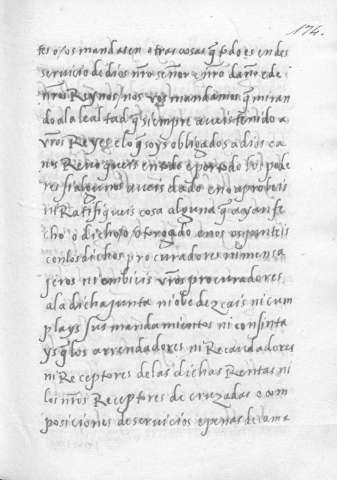 174.
tes o/os mandasen otras cosas q̃ todo es en des
servicio de dios nr̃o señor e nr̃o daño e de
nr̃os Reynos nos vos mandamos q̃ miran
do a la lealtad q̃ siempre aveis tenido a
vr̃os Reyes e lo q̃ soys obligados a dios e a
nos Revoqueis en todo e por todo los pode
res si algunos aveis dado e no aprobeis
ni Ratifiqueis cosa alguna q̃ ayan fe
cho o dicho/o/otorgado e nos os junteis
con los dichos procuradores ni mensa
jeros ni embieis vr̃os procuradores
a la dicha junta ni obedezcais ni cum
plays sus mandamientos ni consinta
ys q̃ los arrendadores ni Recaudadores
ni Receptores de las dichas Rentas ni
los nr̃os Receptores de cruzadas e com
posiciones de servicios e penas de cama